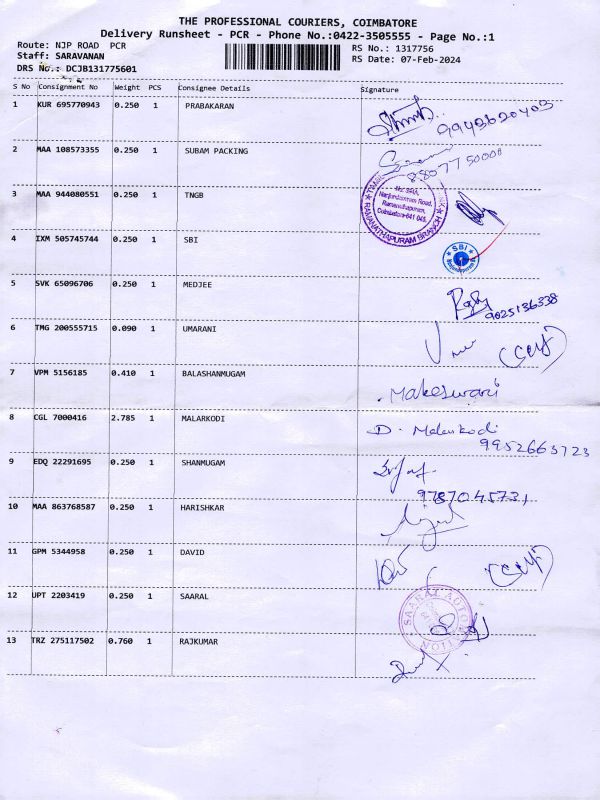 THE PROFESSIONAL COURIERS, COIMBATORE
Delivery Runsheet - PCR - Phone No.:0422-3505555 - Page No.:1
Route: NJP ROAD PCR
RS No.: 1317756
Staff: SARAVANAN
RS Date: 07-Feb-2024
DRS No.: DCJB131775601
S No Consignment No Weight PCS Consignee Details Signature
1 KUR 695770943 0.250 1 PRABAKARAN
9943620403
2 MAA 108573355 0.250 1 SUBAM PACKING
8807750000
3 MAA 944080551 0.250 1 TNGB
Nanjundapuram Road,
Ramanathapuram,
Coimbatore-641 045.
RAMANATHAPURAM BRANCH
4 IXM 505745744 0.250 1 SBI
SBI
5 SVK 65096706 0.250 1 MEDJEE
9025136338
6 TMG 200555715 0.090 1 UMARANI
7 VPM 5156185 0.410 1 BALASHANMUGAM
Makeswari
8 CGL 7000416 2.785 1 MALARKODI
D. Malarkodi
9952663723
9 EDQ 22291695 0.250 1 SHANMUGAM
9787045731
10 MAA 863768587 0.250 1 HARISHKAR
11 GPM 5344958 0.250 1 DAVID
12 UPT 2203419 0.250 1 SAARAL
SAARAL AUTOMATION
13 TRZ 275117502 0.760 1 RAJKUMAR